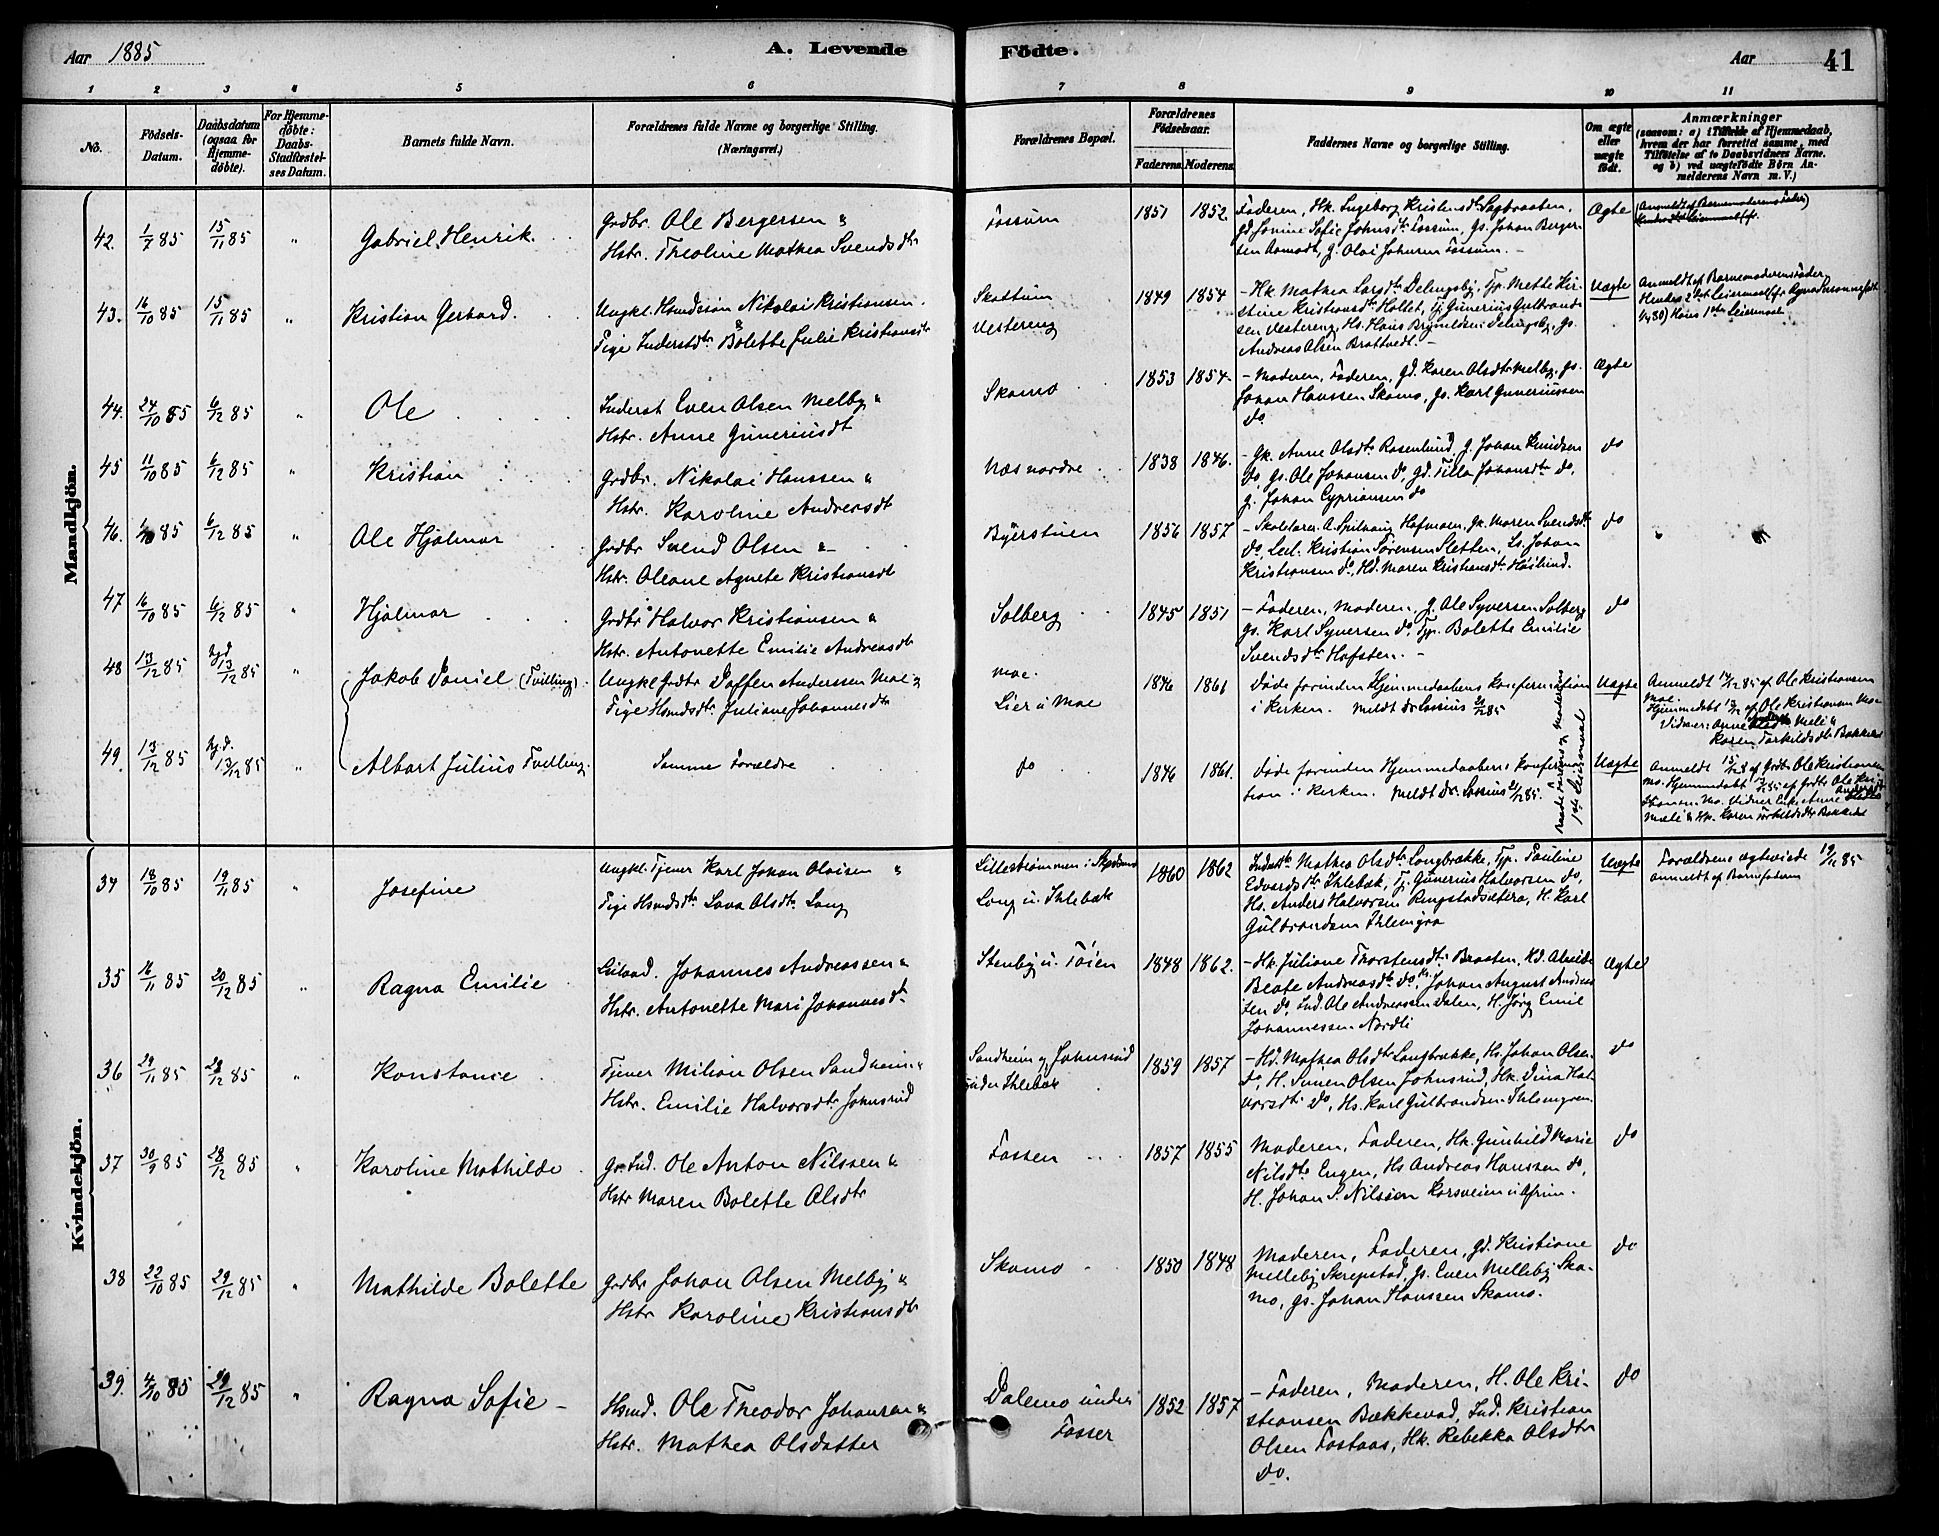 Aar 1885
A. Levende
Födte.
Aar
41
1 2 3 4 5 6 7 8 9 10 11
No.
Födsels-
Datum.
Daabsdatum
(ogsaa for
Hjemme-
döbte).
For Hjemme-
döbte:
Daabs-
Stadfæstel-
ses Datum.
Barnets fulde Navn.
Forældrenes fulde Navne og borgerlige Stilling.
(Næringsvei.)
Forældrenes Bopæl.
Forældrenes
Födselsaar.
Faderens. Moderens.
Faddernes Navne og borgerlige Stilling.
Om ægte
eller
uægte
født.
Anmærkninger
(saasom: a) i Tilfælde af Hjemmedaab,
hvem der har forrettet samme, med
Tilföielse af to Daabsvidners Navne.
og b) ved uægtefödte Börn An-
melderens Navn m. V.)
Mandkjön.
42. 1/7 85 15/11 85 " Gabriel Henrik.
Grdbr. Ole Bergersen &
Hstr. Theoline Mathea Svendsdtr
Fossum 1851 1852
Faderen, Hk. Ingeborg Kristensdtr Sagbraaten,
Gd. Jonine Sofie Johnsdtr Fossum, Gs. Johan Berger-
sen Aamodt, G. Olai Johnsen Fossum. –
Ægte
43. 16/10 85 15/11 85 " Kristian Gerhard.
Ungkl. Husmdssøn Nikolai Kristiansen.
Pige Inderstdtr Bolette Julie Kristiansdtr
Skattum
Vestereng
1849 1854
– Hk. Mathea Larsdtr Delingsby, Tp. Mette Kir-
stine Kristiansdtr Holtet, Tj. Gunerius Gulbrand-
sen Vestereng, Hs. Hans Brynildsen Delingsby, Gs.
Andreas Olsen Brattvedt. –
Uægte
Anmeldt af Barnemoderens Fader
44. 24/10 85 6/12 85 " Ole
Inderst Even Olsen Melby &
Hstr. Anne Guneriusdt
Skamo 1853 1854.
– Moderen, Faderen, Gd. Karen Olsdtr Melby, Gs.
Johan Hanssen Skamo, Gs. Karl Gunerius­sen
do
Ægte
45 11/10 85 6/12 85 " Kristian
Grdbr. Nikolai Hanssen &
Hstr. Karoline Andreasdt
Næs nordre 1838 1846.
– Gk. Anne Olsdtr Rosenlund, G. Johan Knudsen
do, Gs. Ole Johansen do, Gd. Tilla Johansdtr do,
G. Johan Cypriansen do
do
46. 85 6/12 85 " Ole Hjalmar
Grdbr Svend Olsen &
Hstr. Oleane Agnete Kristiansdt
Byerstuen 1856 1857
– Skolelærer A. Spilhaug Hofmoen, Gk. Maren Svendsdtr
do, Leil. Kristian Sørensen Sletten, Ls. Johan
Kristiansen do, Hd. Maren Kristiansdtr Høilund.
do
47 16/10 85 6/12 85 " Hjalmar
Grdbr Halvor Kristiansen &
Hstr. Antonette Emilie Andreasdt
Solberg 1845 1851
– Faderen, Moderen, G. Ole Syversen Solberg
Gs. Karl Syversen do, Tp. Bolette Emilie
Svendsdtr Hofsten. –
do
48 13/12 85 hj.d. 13/12 85 " Jakob Daniel (Tvilling).
Ungkl Grdbr Daffen Anderssen Moe &
Pige Husmdsdtr Juliane Johannesdtr
Moe.
Lier u Moe
1846 1861
Døde forinden Hjemmedaabens Konfirmation
i Kirken. Meldt Dr. Sossius 21/12 85
Uægte
Anmeldt 15/12 85 af Ole Kristiansen
Moe.
Hjemmedøbt 13/12 af Ole Kristiansen Mo-
Vidner: Anne Meli &
Karen Torkildsdtr Bakken
49. 13/12 85 hj.d. 13/12 85 " Albert Julius Tvilling.
Samme Forældre
do 1846 1861.
Døde forinden Hjemmedaabens Konfirma-
tion i Kirken. Meldt Dr. Sossius 21/12 85.
Baade Faderens og Moderens
1ste Leiermaal
Uægte
Anmeldt 15/12 85 af Grdbr. Ole Kristiansen
Mo. Hjemmedøbt 13/12 85 af Grdbr Ole Kri-
stiansen Mo. Vidner Enke Anne Andersdtr
Mæli & Hk. Karen Torkildsdtr Bakken
Kvindekjön.
34 18/10 85 19/11 85 " Josefine
Ungkl. Tjener Karl Johan Olaisen &
Pige Husmdsdtr Lava Olsdtr Lang
Lillestrømmen i Skedsmo
Lang u. Ihlebæk
1860 1862
Indsdtr Mathea Olsdtr Langbrække, Tp. Pauline
Edvardsdtr Ihlebæk, Tj. Gunerius Halvorsen do,
Hs. Anders Halvorsen Ringstadsætera, H. Karl
Gulbrandsen Ihlengen
Uægte
Forældrene ægteviede 19/11 85
anmeldt af Barnefaderen
35 16/11 85 20/12 85 " Ragna Emilie
Leilænd. Johannes Andreassen &
Hstr. Antonette Mari Johannesdtr
Stenby u. Tøien 1848 1862.
– Hk. Juliane Thorstensdtr Braaten, Hd. Alvilde
Beate Andreasdtr do, Hs. Johan August Andreas-
sen do, Ind. Ole Andreassen Dalen, H. Jørg Emil
Johannessen Nordli
Ægte
36 29/11 85 28/12 85 " Konstance
Tjener Milian Olsen Sandheim &
Hstr. Emilie Halvorsdtr Johnsrud
Sandheim og Johnsrud
under Ihlebæk
1859 1857
– Hd. Mathea Olsdtr Langbrække, Hs. Johan Olsen
do, H. Simen Olsen Johnsrud, Hk. Dina Hal-
vorsdtr do, Hs. Karl Gulbrandsen Ihlengen.
do
37 30/9 85 28/12 85 " Karoline Mathilde
Gr.Ind. Ole Anton Nilssen &
Hstr Maren Bolette Olsdtr
Fossen 1857 1855
Moderen, Faderen, Hk. Gunhild Marie
Nilsdtr Engen, Hs Andreas Hanssen do,
H. Johan S. Nilssen Korsveien u. Efrim.
do
38 22/10 85 29/12 85 " Mathilde Bolette
Grdbr Johan Olsen Melby &
Hstr Karoline Kristiansdtr
Skamo 1850 1848
Moderen, Faderen, Gd. Kristiane
Melleby Skrepstad, Gs. Even Melleby Ska-
mo, Gs. Johan Hanssen Skamo.
do
39. 4/10 85 29/12 85 " Ragna Sofie –
Husmd. Ole Theodor Johansen &
Hstr. Mathea Olsdatter
Dalemo under
Fosser
1852 1857
– Faderen, Moderen, H. Ole Kri-
stiansen Bækkevad, Ind. Kristian
Olsen Fostaas, Hk. Rebekka Olsdtr
do.
do